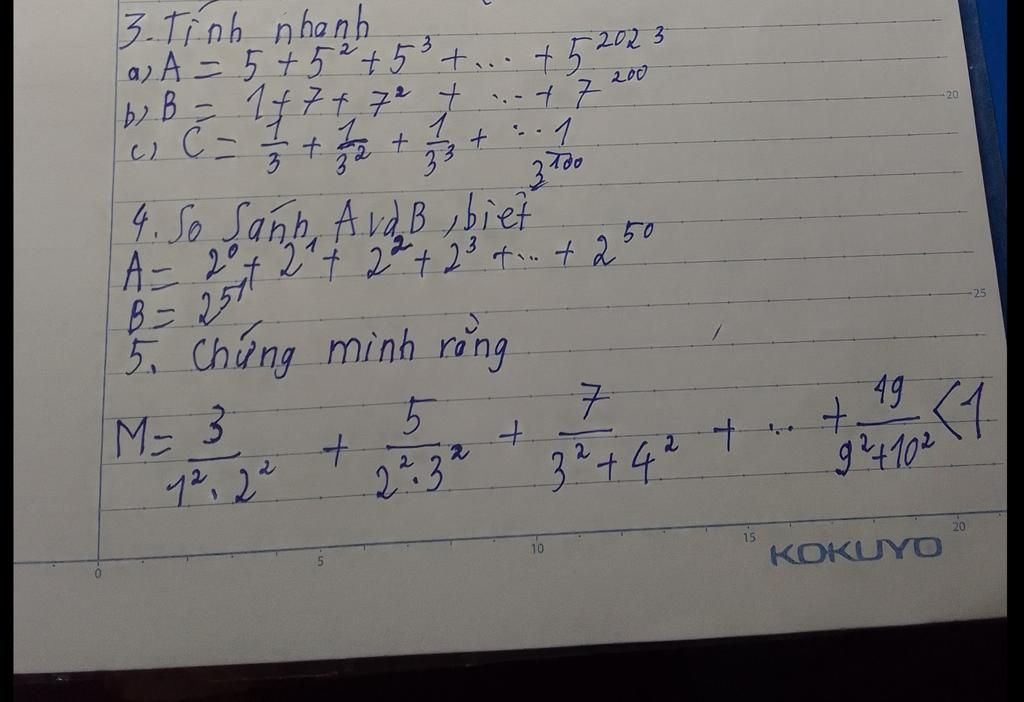 3. Tính nhanh
a) A = 5 + 5² + 5³ + ... + 5²⁰²³
b) B = 1 + 7 + 7² + ... + 7²⁰⁰
c) C = 1/3 + 1/3² + 1/3³ + ... 1/3¹⁰⁰
4. So Sánh A và B, biết
A = 2⁰ + 2¹ + 2² + 2³ + ... + 2⁵⁰
B = 2⁵¹
5. Chứng minh rằng
M = 3/(1².2²) + 5/(2².3²) + 7/(3² + 4²) + ... + 19/(9² + 10²) < 1
0 5 10 15 20
20
25
KOKUYO